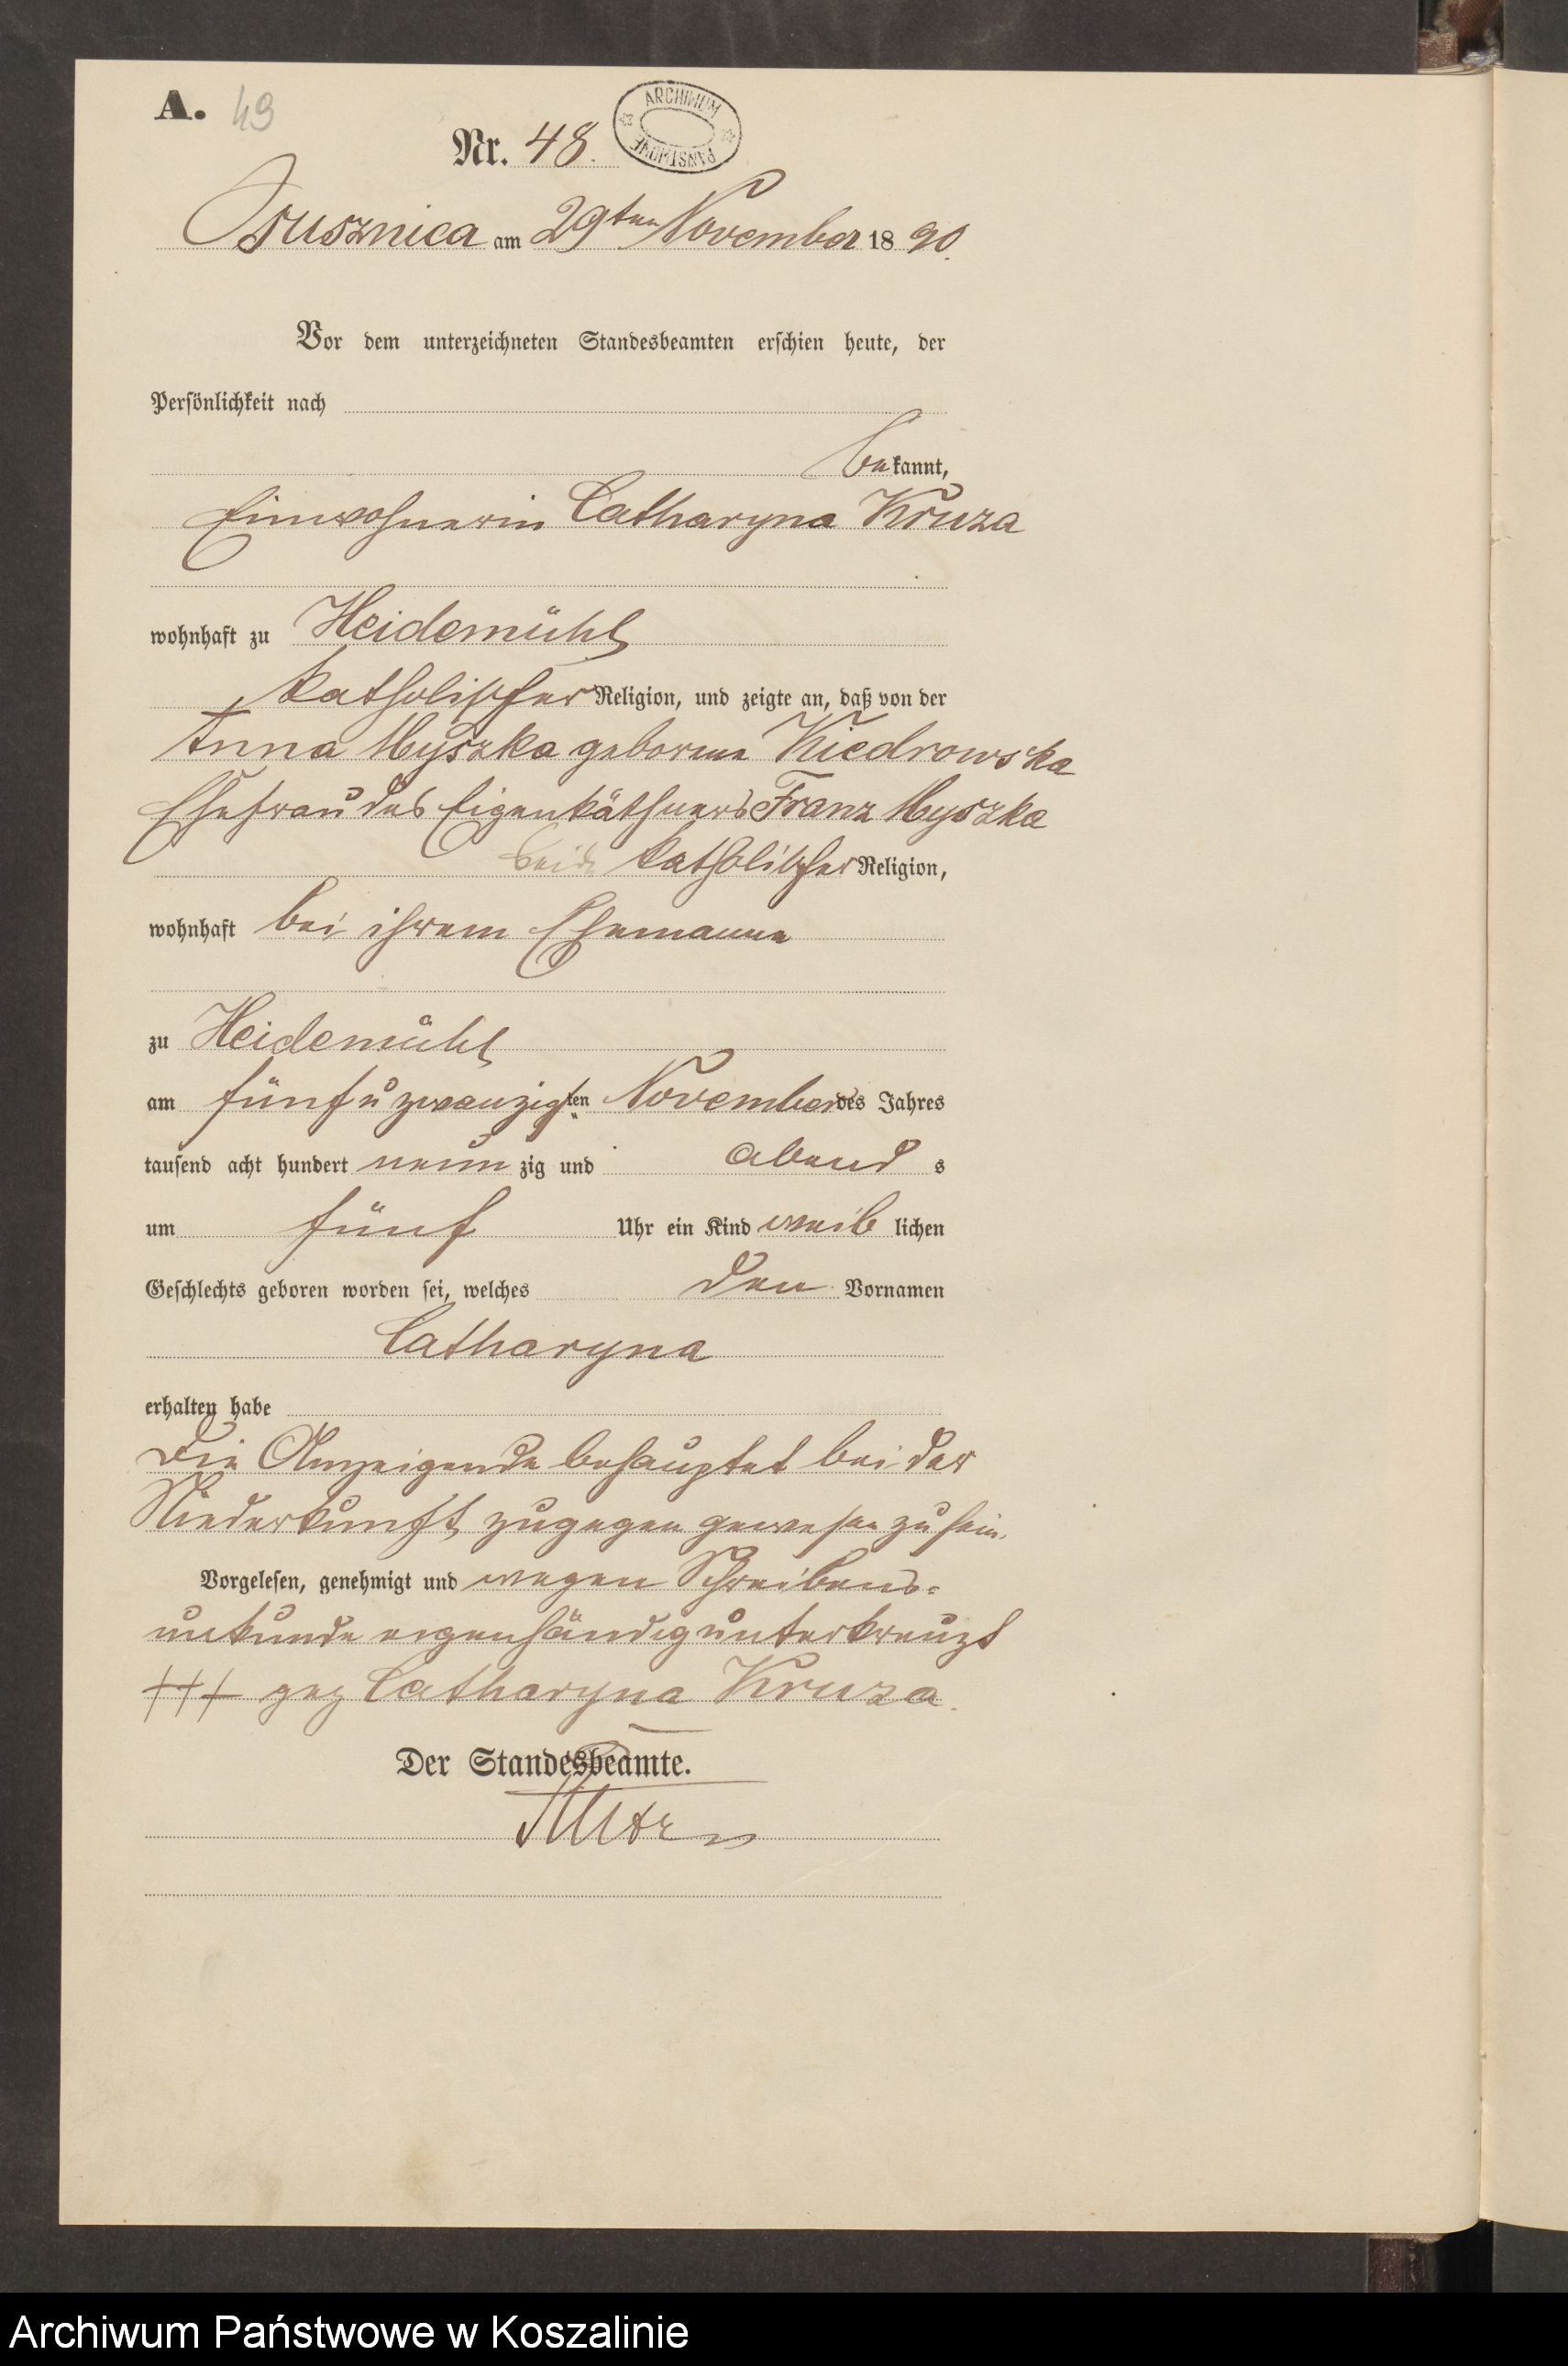 A. 49
Nr. 48.
ARCHIWUM PAŃSTWOWE
Osusznica am 29ten November 1890.
Vor dem unterzeichneten Standesbeamten erschien heute, der
Persönlichkeit nach
bekannt,
Einwohnerin Catharyna Kruza
wohnhaft zu Heidemühl
katholischer Religion, und zeigte an, daß von der
Anna Myszka geborene Kiedrowska
Ehefrau des Eigenkäthners Franz Myszka
beide katholischer Religion,
wohnhaft bei ihrem Ehemanne
zu Heidemühl
am fünf u zwanzigten November des Jahres
tausend acht hundert neunzig und abends
um fünf Uhr ein Kind weiblichen
Geschlechts geboren worden sei, welches den Vornamen
Catharyna
erhalten habe
Die Anzeigende behauptet bei der
Niederkunft zugegen gewesen zu sein.
Vorgelesen, genehmigt und wegen Schreibens-
unkunde eigenhändig unterkreuzt
+++ gez Catharyna Kruza.
Der Standesbeamte.
Archiwum Państwowe w Koszalinie